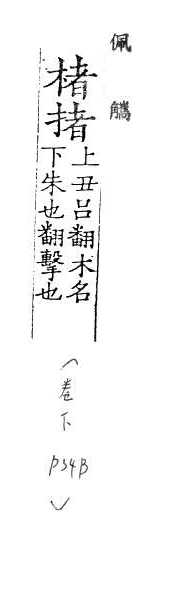 佩觿
楮撦
上丑呂翻木名
下朱也翻擊也
（卷下 P34B）